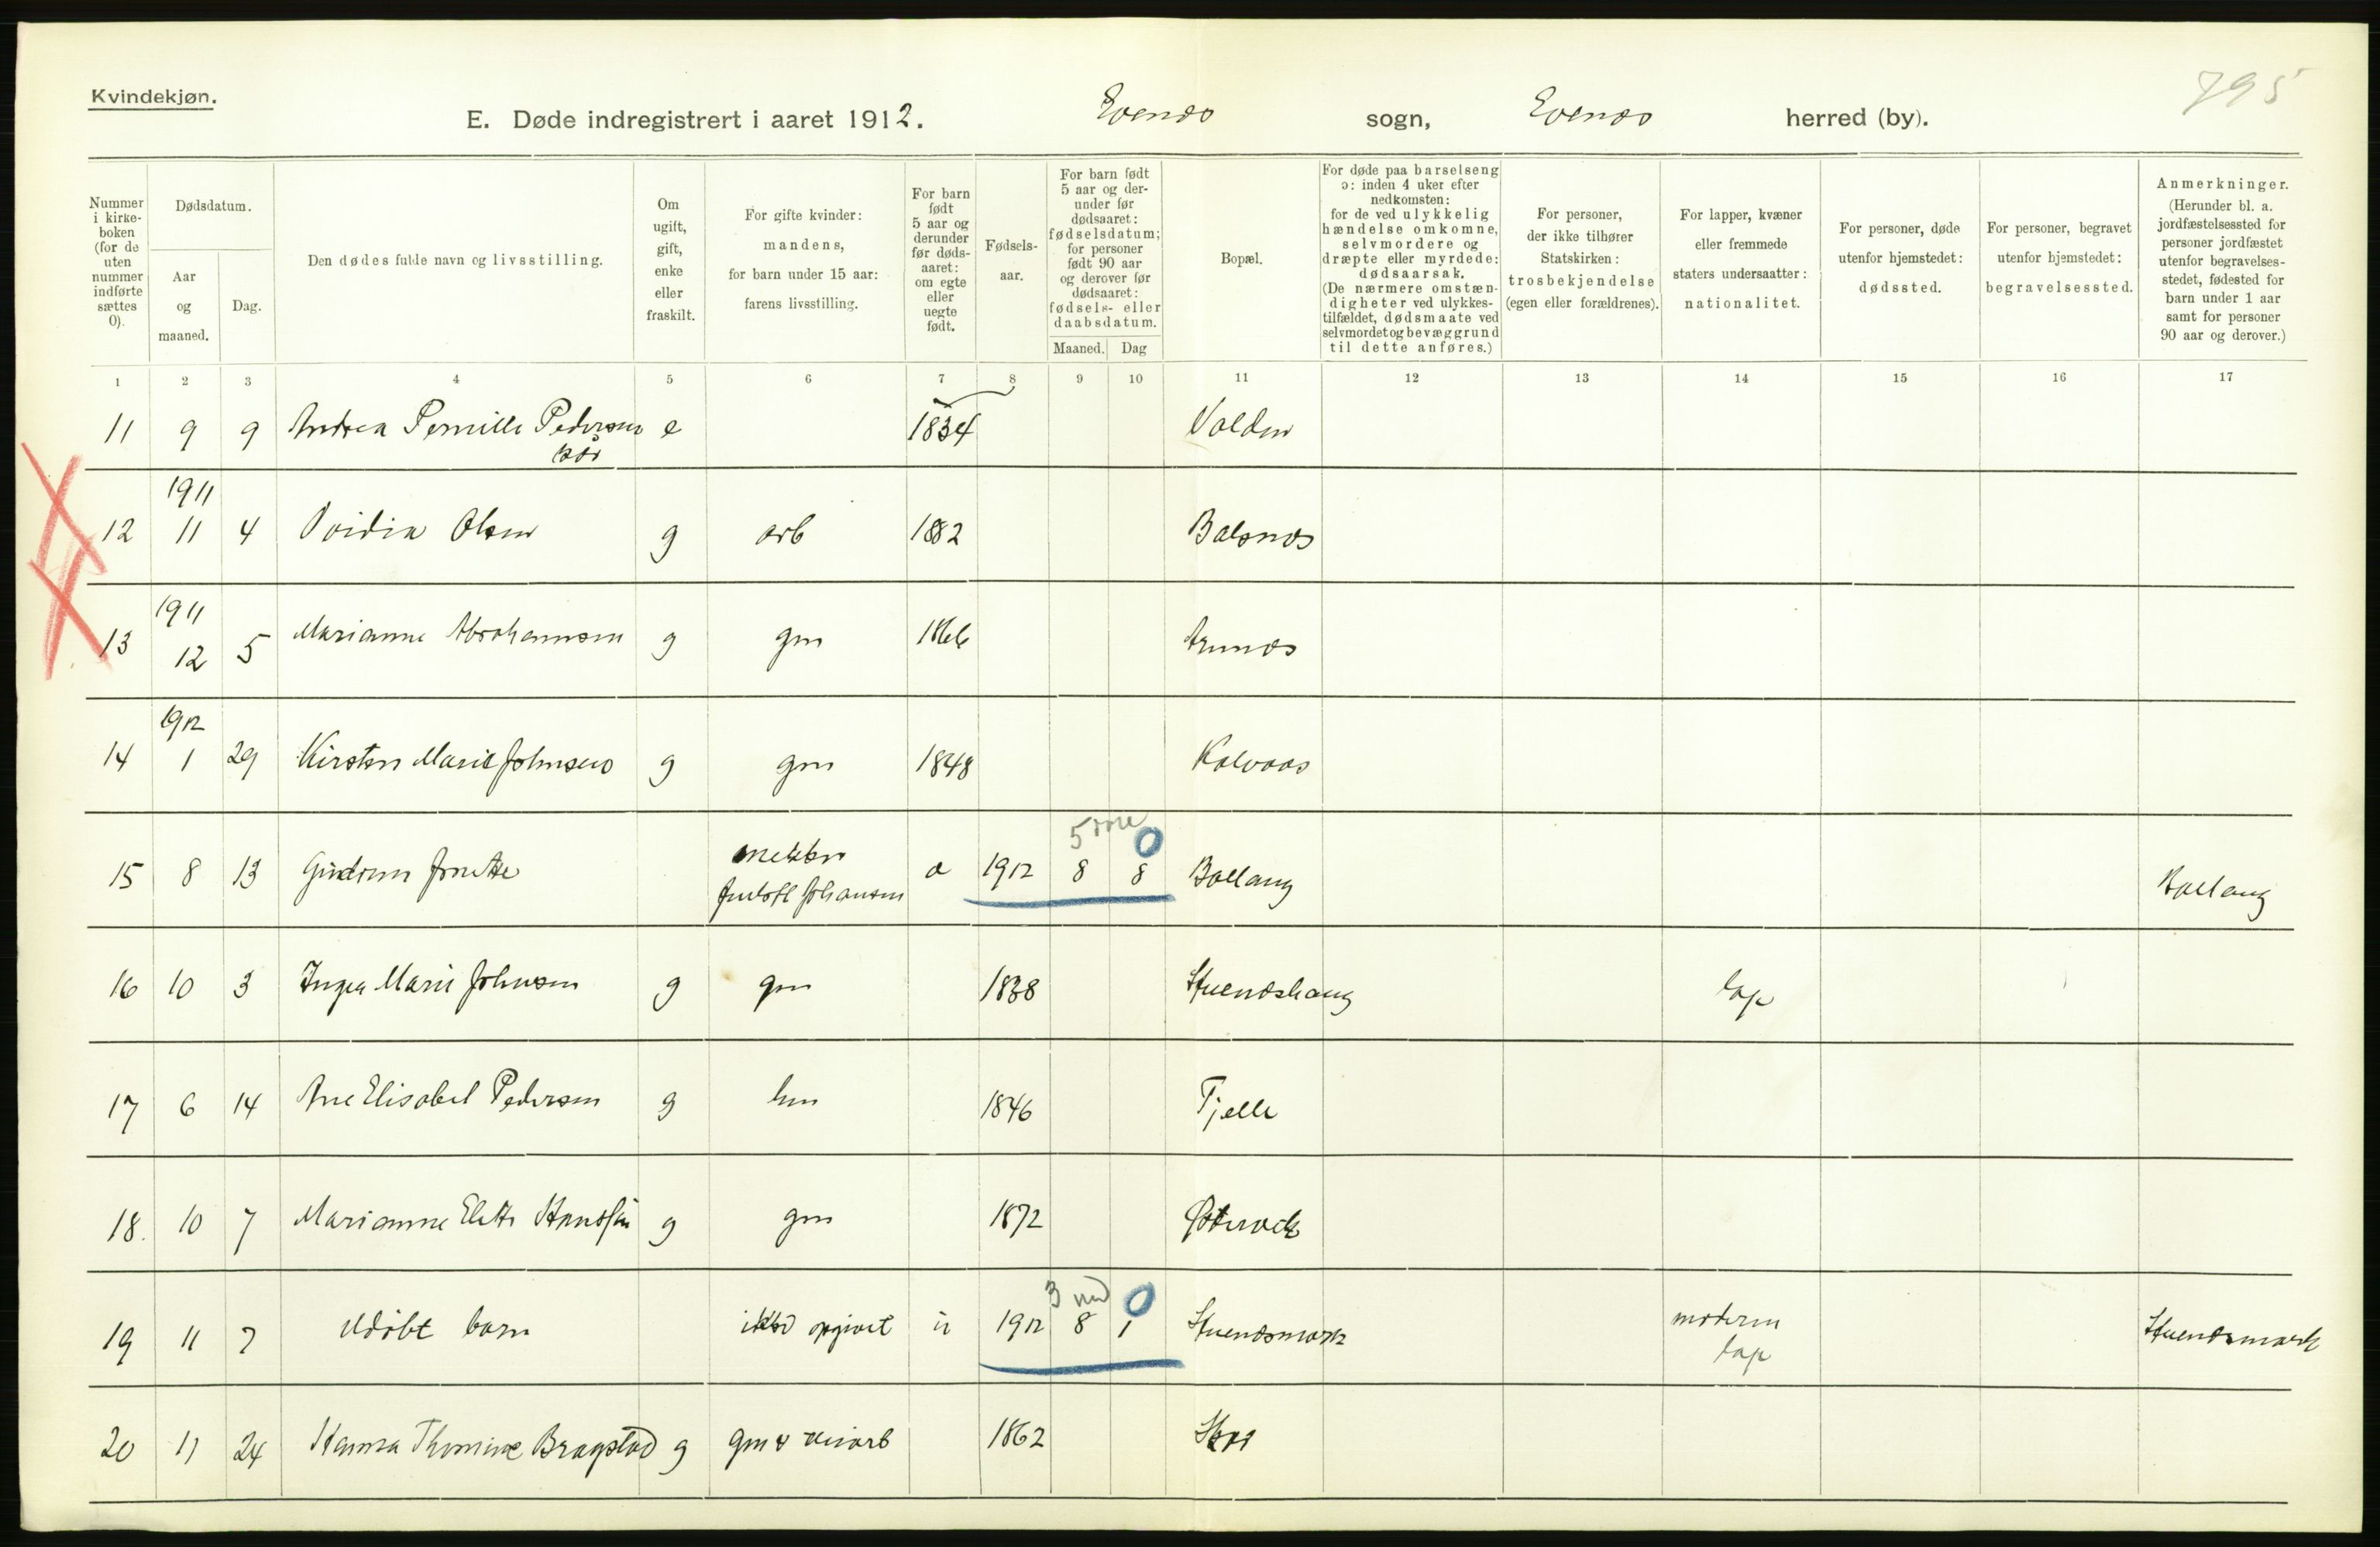 Kvindekjøn.
795
E. Døde indregistrert i aaret 1912. Evenes sogn, Evenes herred (by).
Nummer i kirke-boken (for de uten nummer indførte sættes 0).
Dødsdatum.
Aar og maaned.
Dag.
Den dødes fulde navn og livsstilling.
Om ugift, gift, enke eller fraskilt.
For gifte kvinder: mandens, for barn under 15 aar: farens livsstilling.
For barn født 5 aar og derunder før døds-aaret: om egte eller uegte født.
Fødsels-aar.
For barn født 5 aar og der-under før dødsaaret: fødselsdatum; for personer født 90 aar og derover før dødsaaret: fødsels- eller daabsdatum.
Maaned. Dag
Bopæl.
For døde paa barselseng ɔ: inden 4 uker efter nedkomsten: for de ved ulykkelig hændelse omkomne, selvmordere og dræpte eller myrdede: dødsaarsak. (De nærmere omstæn-digheter ved ulykkes-tilfældet, dødsmaate ved selvmordet og bevæggrund til dette anføres.)
For personer, der ikke tilhører Statskirken: trosbekjendelse (egen eller forældrenes).
For lapper, kvæner eller fremmede staters undersaatter: nationalitet.
For personer, døde utenfor hjemstedet: dødssted.
For personer, begravet utenfor hjemstedet: begravelsessted.
Anmerkninger. (Herunder bl. a. jordfæstelsessted for personer jordfæstet utenfor begravelses-stedet, fødested for barn under 1 aar samt for personer 90 aar og derover.)
1 2 3 4 5 6 7 8 9 10 11 12 13 14 15 16 17
11 9 9 Andrea Pernille Pedersen e 1834 Volden
kår
1911
12 11 4 Olsen g arb 1882 Balsnes
1911
13 12 5 Marianne Abrahamsen g gm 1866
1912
14 1 29 Kirsten Marie Johnsen g gm 1848 Kalvaas
5 0
15 8 13 Gudrun Jonette Johansen 1912 8 8 Ballang Ballang
16 10 3 Inga Marie Johnsen g gm 1838 Stueneshaug lap
17 6 14 Ane Elisabet Pedersen g 1846 Tjelle
18. 10 7 Marianne g gm 1872 Østervik
3 md 0
19 11 7 Udöbt barn ikke opgivet u 1912 8 1 Stuenesmark moderen lap Stuenesmark
20 11 24 Hanna Thomine Bragstad g gm & veiarb 1862